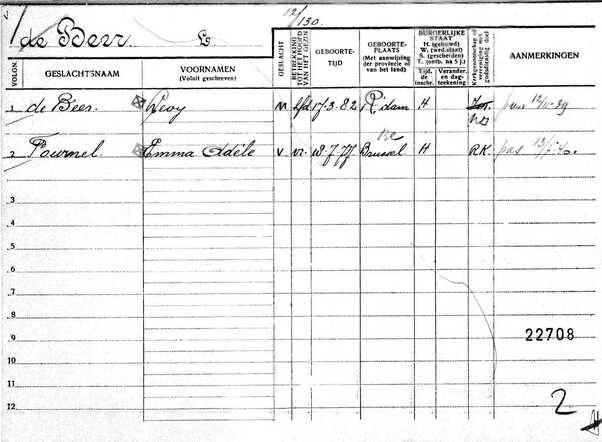 V de Beer L 12/130.
VOLGN. GESLACHTSNAAM VOORNAMEN (Voluit geschreven) GESLACHT BETREKKING TOT HET HOOFD VAN HET GEZIN GEBOORTE-TIJD GEBOORTE-PLAATS (Met aanwijzing der provincie of van het land) BURGERLIJKE STAAT H. (gehuwd) W. (wed.staat) S. (gescheiden) T. (ontb. na 5 j.) Tijd. de inschr. Verander. en dag-teekening Kerkgenootschap of vereeniging met godsdienstig doel AANMERKINGEN
1 de Beer. Levy M hfd 17.3.82 R'dam H
NI
2 Fournel. Emma Adèle V vr. 18.7.77 Brussel H R.K. pas
3
4
5
6
7
8
9 22708
10
11
12 2